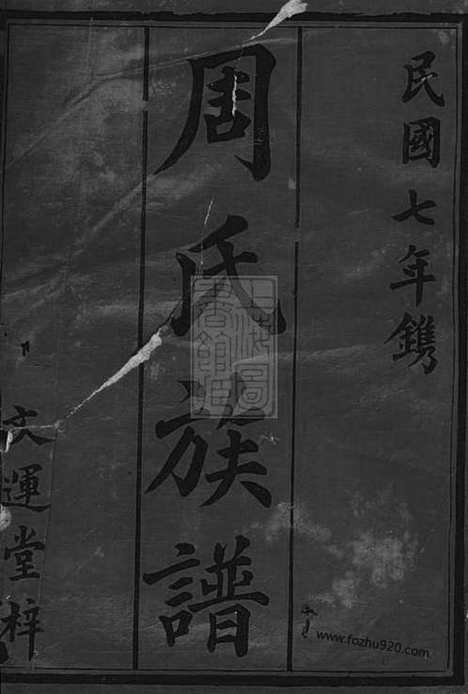 民國七年鐫
周氏族譜
文運堂梓
www.fozhu920.com